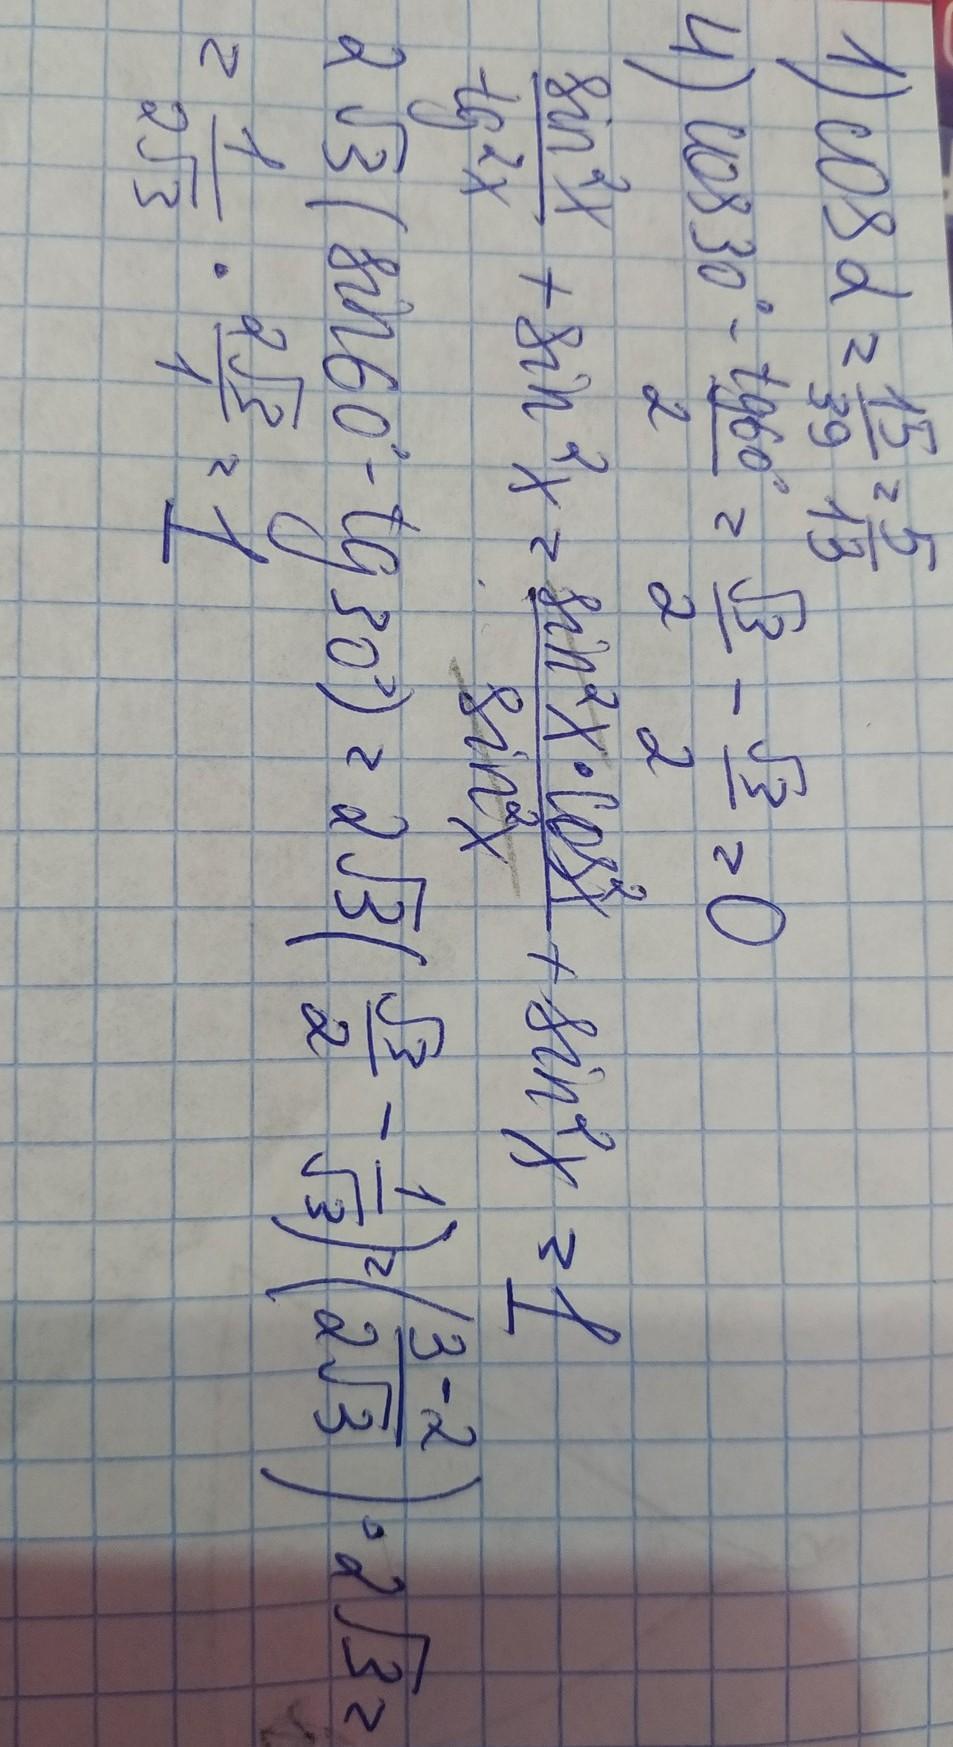 1) cos α = 15/39 = 5/13
4) cos 30° - tg60°/2 = √3/2 - √3/2 = 0
sin²x/tg²x + sin²x = sin²x·cos²x/sin²x + sin²x = 1
2√3(sin60° - tg30°) = 2√3(√3/2 - 1/√3) = (3-2/2√3)·2√3 =
= 1/2√3 · 2√3/1 = 1